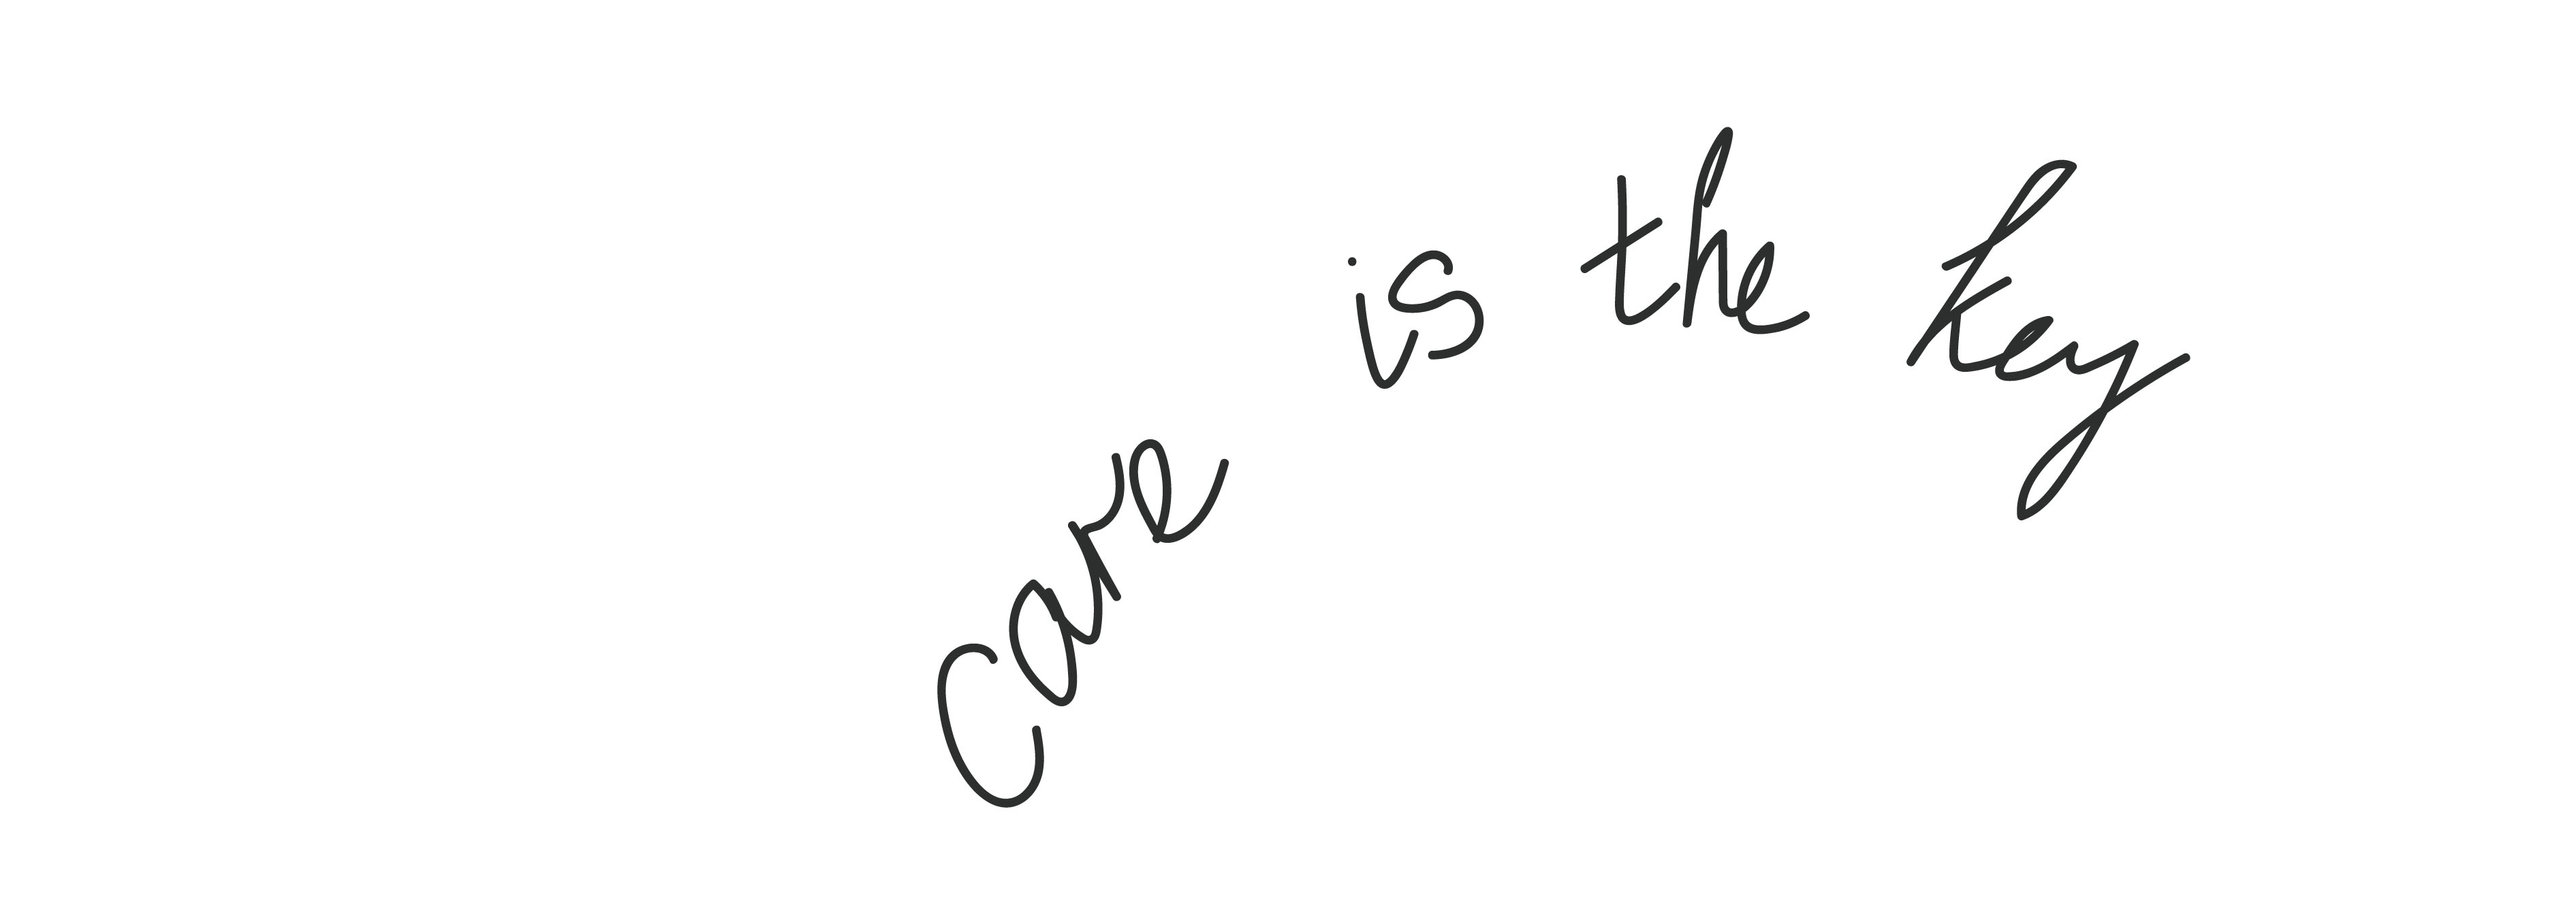 care is the key